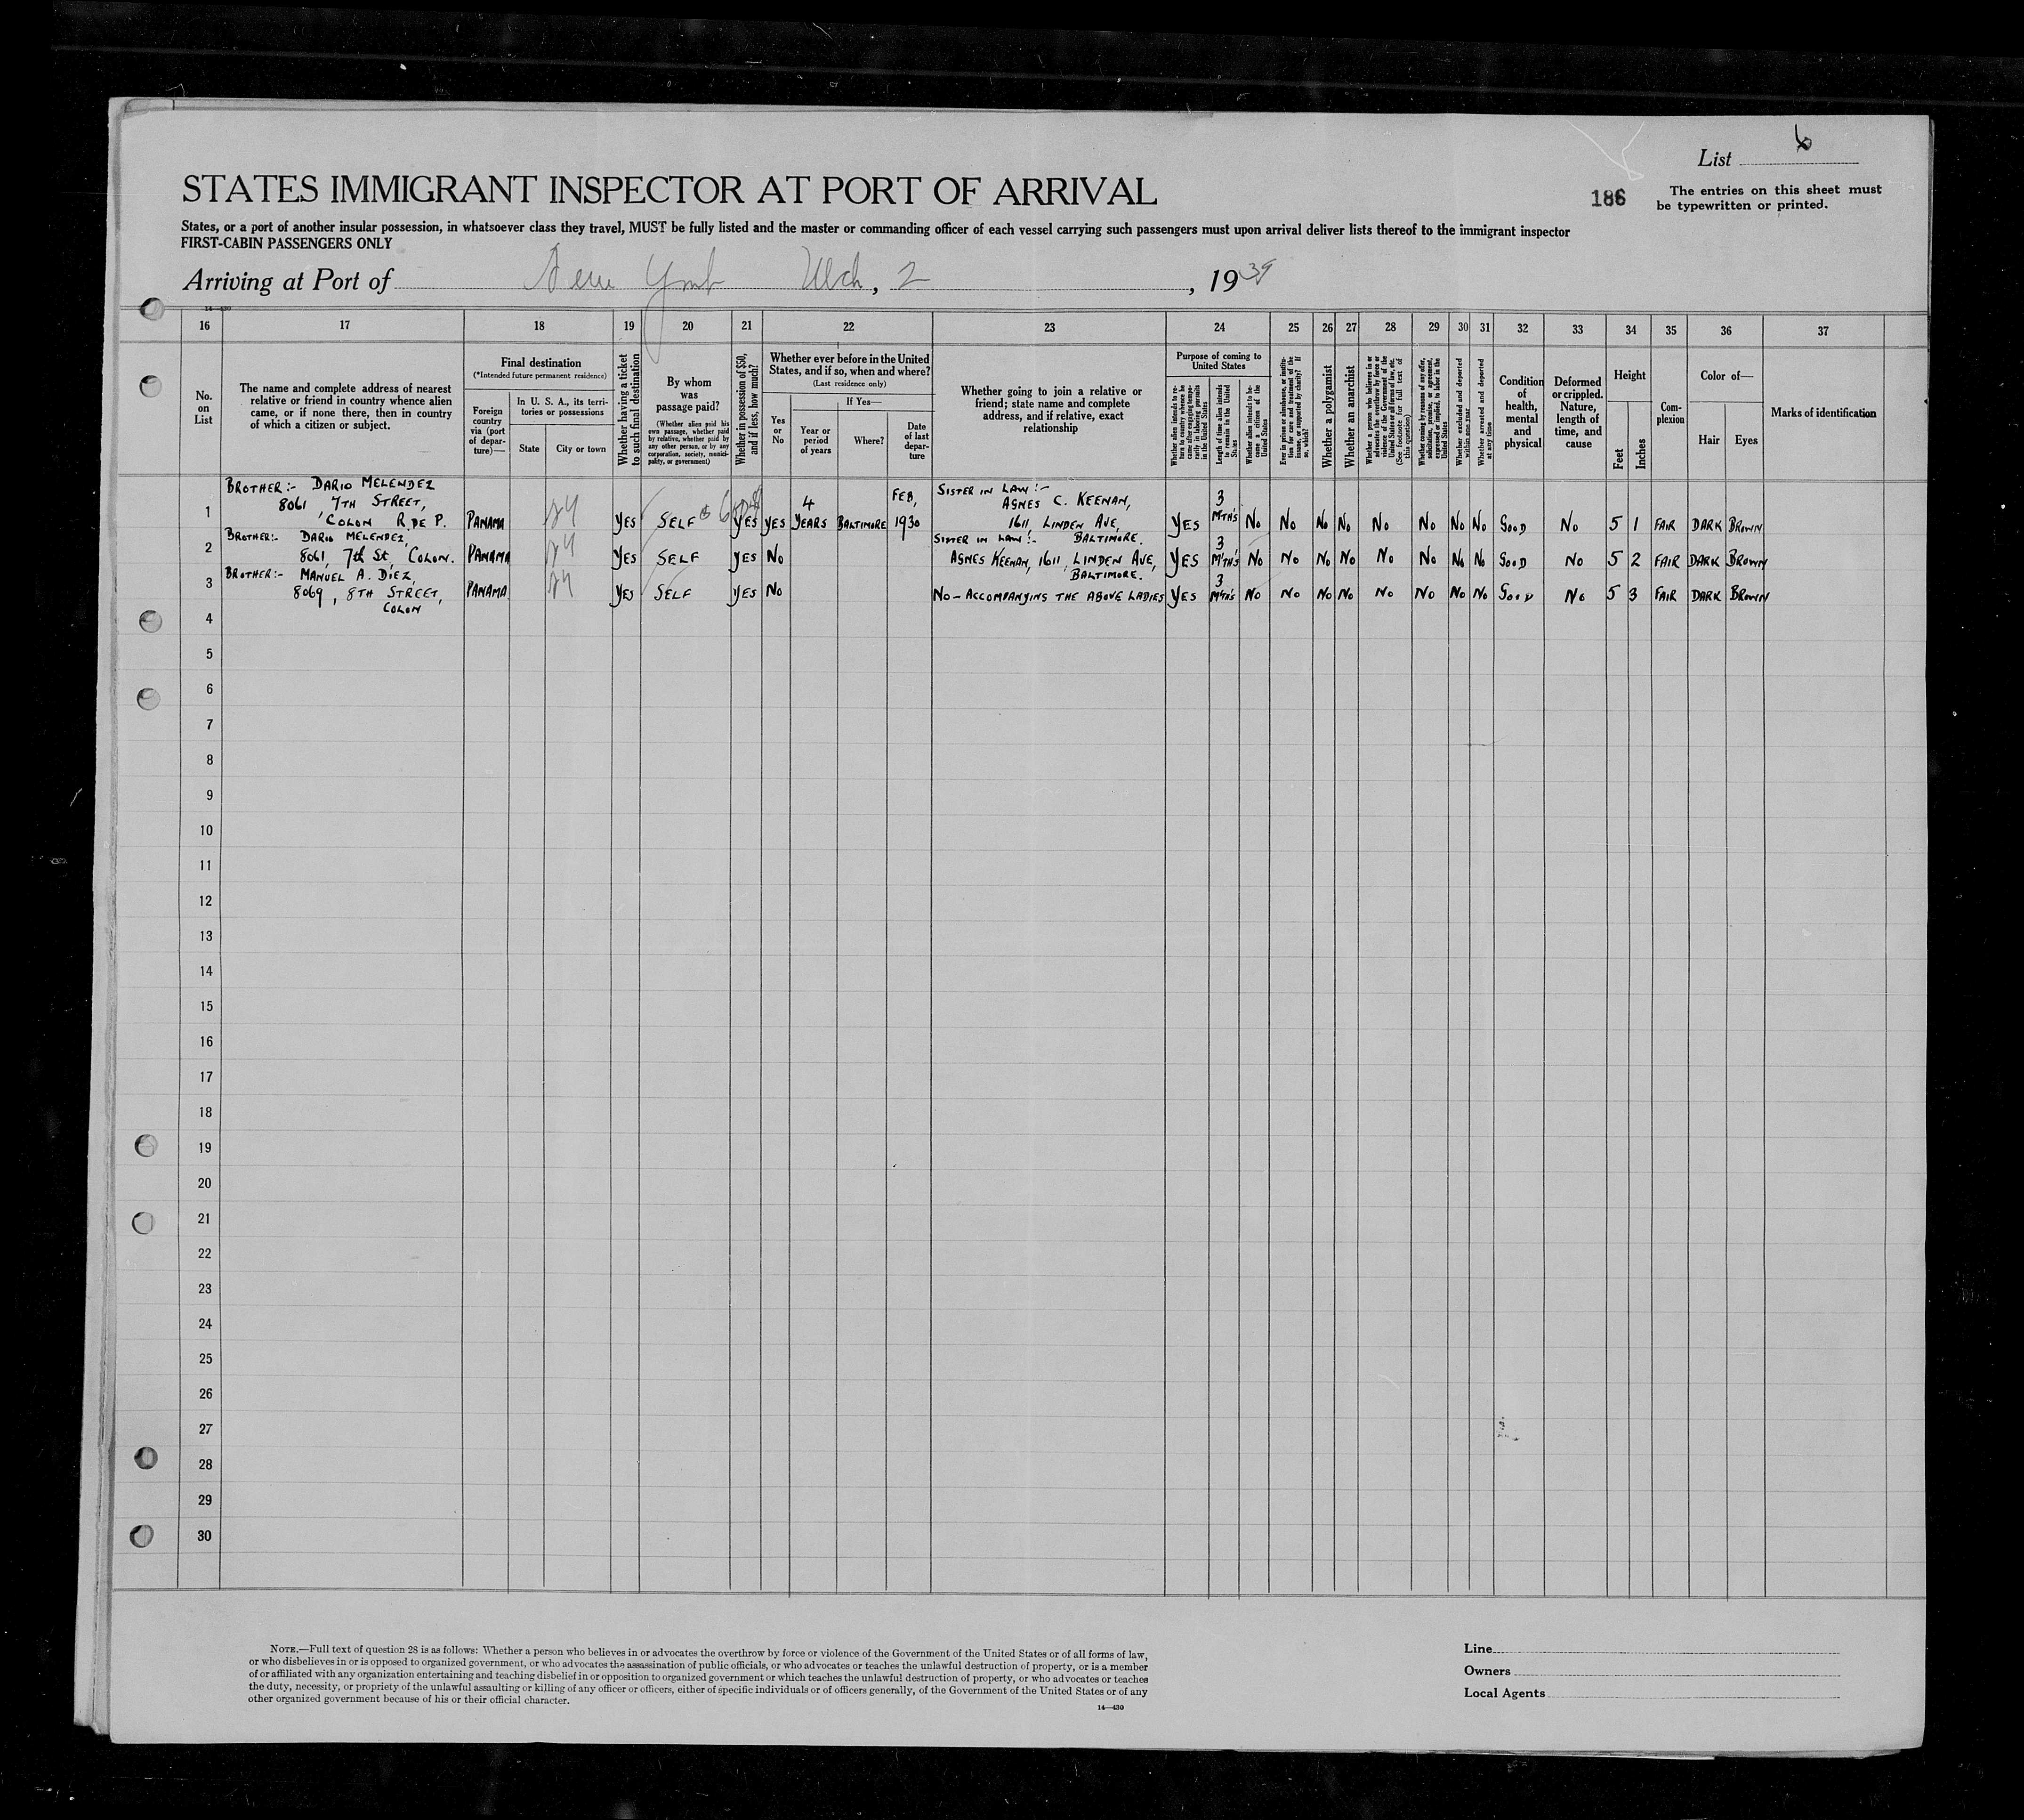 List 6
STATES IMMIGRANT INSPECTOR AT PORT OF ARRIVAL
186
The entries on this sheet must
be typewritten or printed.
States, or a port of another insular possession, in whatsoever class they travel, MUST be fully listed and the master or commanding officer of each vessel carrying such passengers must upon arrival deliver lists thereof to the immigrant inspector
FIRST-CABIN PASSENGERS ONLY
Arriving at Port of New York Mch, 2, 1939
14—430
16 17 18 19 20 21 22 23 24 25 26 27 28 29 30 31 32 33 34 35 36 37
No.
on
List
The name and complete address of nearest
relative or friend in country whence alien
came, or if none there, then in country
of which a citizen or subject.
Final destination
(*Intended future permanent residence)
Foreign
country
via (port
of depar-
ture)—
In U. S. A., its terri-
tories or possessions
State
City or town
Whether having a ticket
to such final destination
By whom
was
passage paid?
(Whether alien paid his
own passage, whether paid
by relative, whether paid by
any other person, or by any
corporation, society, munici-
pality, or government)
Whether in possession of $50,
and if less, how much?
Whether ever before in the United
States, and if so, when and where?
(Last residence only)
Yes
or
No
If Yes—
Year or
period
of years
Where?
Date
of last
depar-
ture
Whether going to join a relative or
friend; state name and complete
address, and if relative, exact
relationship
Purpose of coming to
United States
Whether alien intends to re-
turn to country whence he
came after engaging tempo-
rarily in laboring pursuits
in the United States
Length of time alien intends
to remain in the United
States
Whether alien intends to be-
come a citizen of the
United States
Ever in prison or almshouse, or institu-
tion for care and treatment of the
insane, or supported by charity? If
so, which?
Whether a polygamist
Whether an anarchist
Whether a person who believes in or
advocates the overthrow by force or
violence of the Government of the
United States or all forms of law, etc.
(See footnote for full text of
this question)
Whether coming by reasons of any offer,
solicitation, promise, or agreement,
expressed or implied, to labor in the
United States
Whether excluded and deported
within one year
Whether arrested and deported
at any time
Condition
of
health,
mental
and
physical
Deformed
or crippled.
Nature,
length of
time, and
cause
Height
Feet
Inches
Com-
plexion
Color of—
Hair
Eyes
Marks of identification
BROTHER:- DARIO MELENDEZ
8061, 7TH STREET,
COLON R. DE P.
1 PANAMA YES SELF YES YES 4 YEARS BALTIMORE FEB, 1930
SISTER IN LAW:-
AGNES C. KEENAN,
1611, LINDEN AVE,
BALTIMORE.
YES 3 MTH'S NO NO NO NO NO NO NO NO GOOD NO 5 1 FAIR DARK BROWN
BROTHER:- DARIO MELENDEZ,
8061, 7th St, COLON.
2 PANAMA YES SELF YES NO
SISTER IN LAW:-
AGNES KEENAN, 1611, LINDEN AVE,
BALTIMORE.
YES 3 MTH'S NO NO NO NO NO NO NO NO GOOD NO 5 2 FAIR DARK BROWN
BROTHER:- MANUEL A. DIEZ,
8069, 8TH STREET,
COLON
3 PANAMA YES SELF YES NO
NO - ACCOMPANYING THE ABOVE LADIES
YES 3 MTH'S NO NO NO NO NO NO NO NO GOOD NO 5 3 FAIR DARK BROWN
4
5
6
7
8
9
10
11
12
13
14
15
16
17
18
19
20
21
22
23
24
25
26
27
28
29
30
NOTE.—Full text of question 28 is as follows: Whether a person who believes in or advocates the overthrow by force or violence of the Government of the United States or of all forms of law,
or who disbelieves in or is opposed to organized government, or who advocates the assassination of public officials, or who advocates or teaches the unlawful destruction of property, or is a member
of or affiliated with any organization entertaining and teaching disbelief in or opposition to organized government or which teaches the unlawful destruction of property, or who advocates or teaches
the duty, necessity, or propriety of the unlawful assaulting or killing of any officer or officers, either of specific individuals or of officers generally, of the Government of the United States or of any
other organized government because of his or their official character.
14—430
Line
Owners
Local Agents